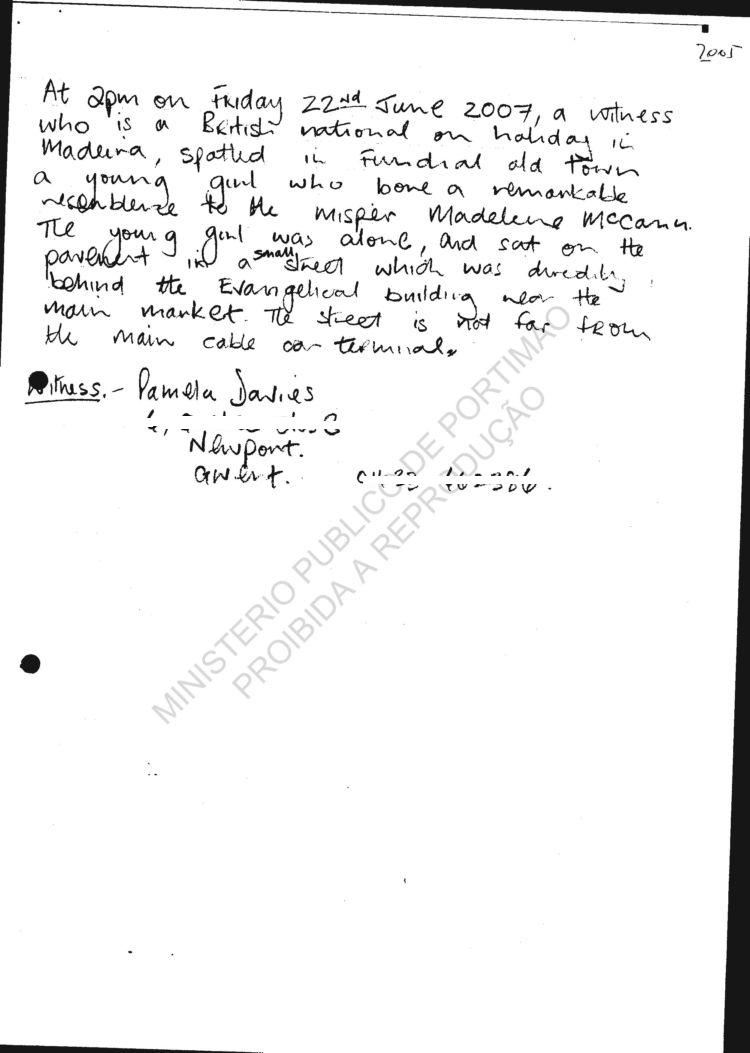 2005
At 2pm on Friday 22nd June 2007, a witness
who is a British national on holiday in
Madeira, spotted in Funchal old town
a young girl who bore a remarkable
resemblence to the misper Madeleine McCann.
The young girl was alone, and sat on the
pavement in a small street which was directly
behind the Evangelical building near the
main market. The street is not far from
the main cable car terminal.
Witness. - Pamela Davies
Newport.
Gwent.
MINISTERIO PUBLICO DE PORTIMAO
PROIBIDA A REPRODUÇÃO